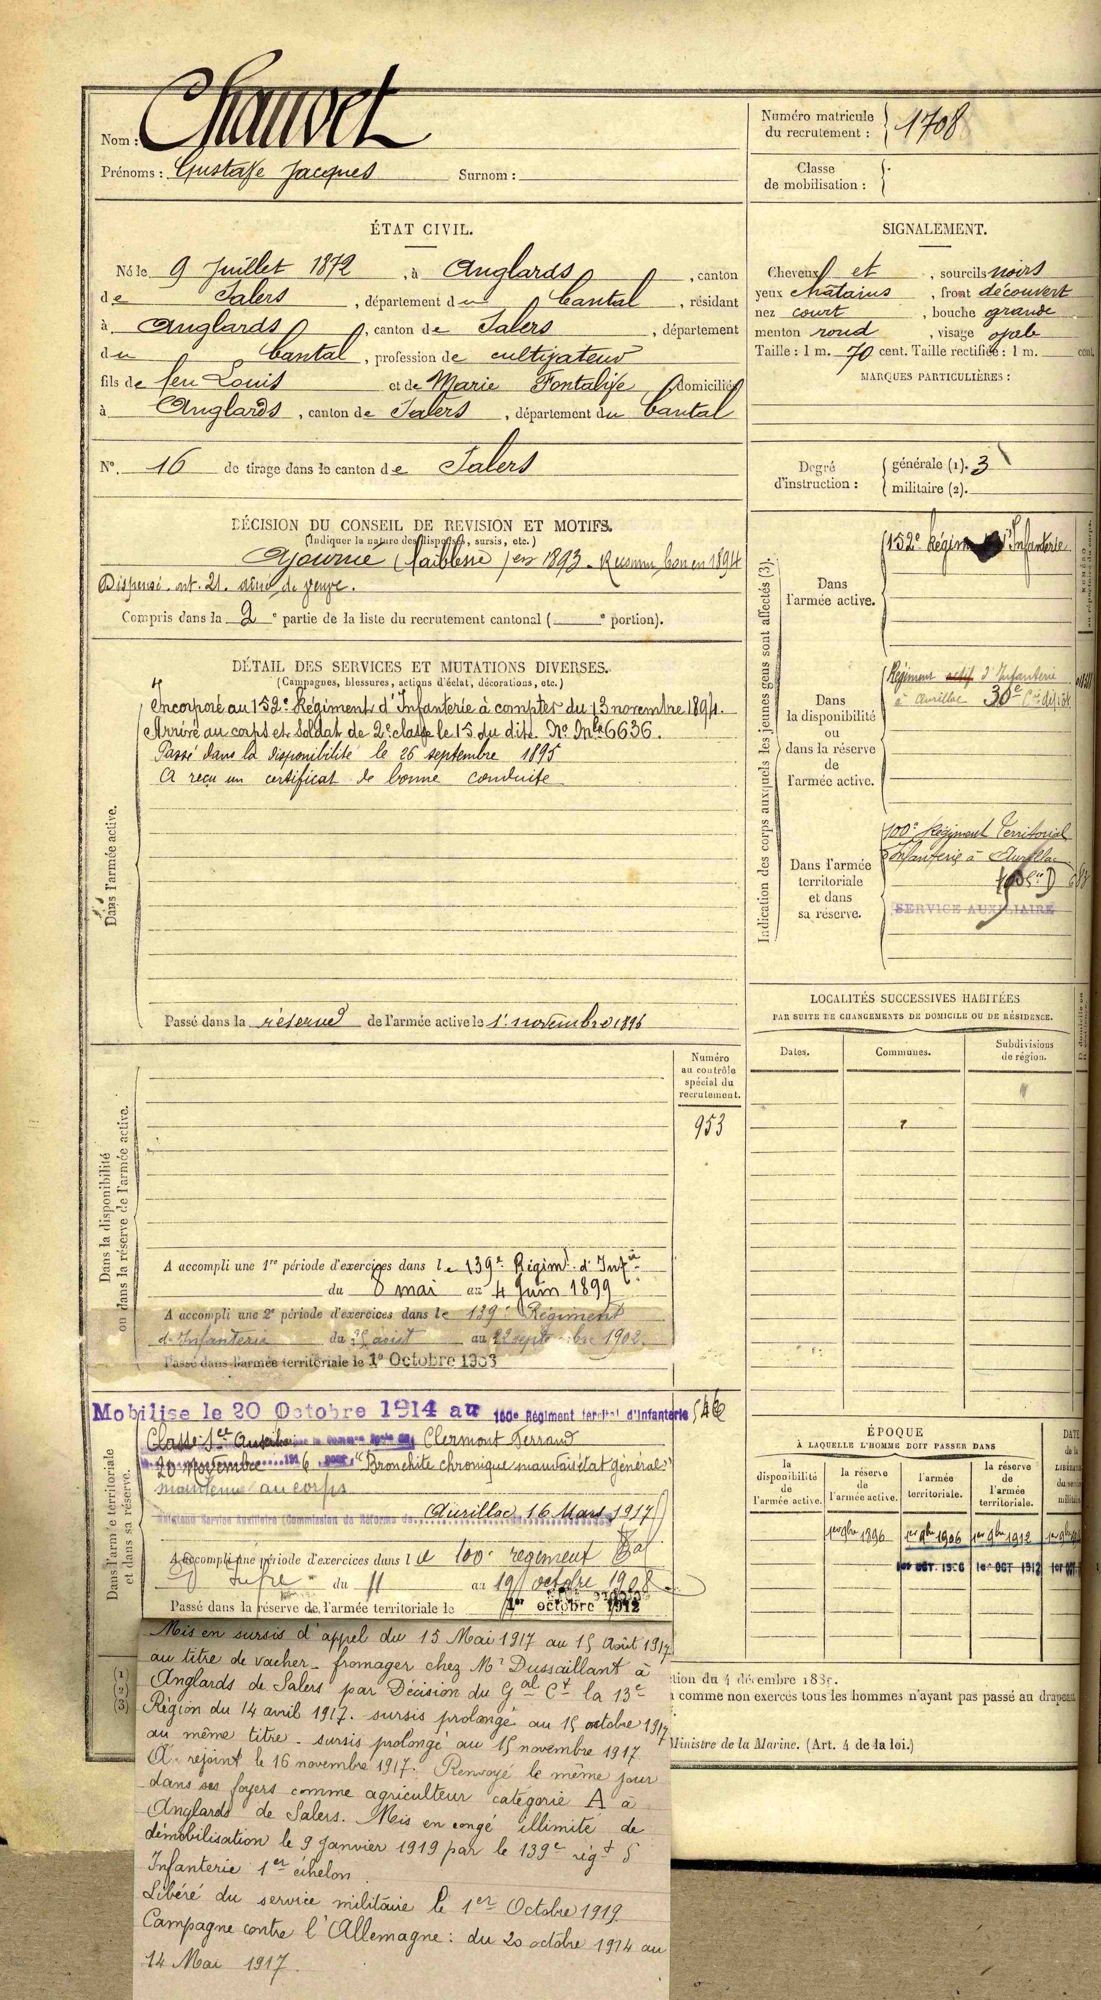 Nom : Chauvet
Prénoms : Gustave Jacques Surnom :
ÉTAT CIVIL.
Né le 9 Juillet 1872, à Anglards, canton
de Salers, département du Cantal, résidant
à Anglards, canton de Salers, département
du Cantal, profession de cultivateur
fils de feu Louis et de Marie Fontalive domiciliés
à Anglards, canton de Salers, département du Cantal
N°. 16 de tirage dans le canton de Salers
DÉCISION DU CONSEIL DE REVISION ET MOTIFS.
(Indiquer la nature des dispenses, sursis, etc.)
Ajourné (faiblesse) en 1893 - Reconnu bon en 1894
Dispensé art. 21. aîné de veuve.
Compris dans la 2e partie de la liste du recrutement cantonal ( e portion).
DÉTAIL DES SERVICES ET MUTATIONS DIVERSES.
(Campagnes, blessures, actions d'éclat, décorations, etc.)
Dans l'armée active.
Incorporé au 152e Régiment d'Infanterie à compter du 13 novembre 1894.
Arrivé au corps et Soldat de 2e classe le 15 du dit. No Mle 6636.
Passé dans la disponibilité le 26 septembre 1895
A reçu un certificat de bonne conduite
Passé dans la réserve de l'armée active le 1er novembre 1896
Dans la disponibilité
ou dans la réserve de l'armée active.
Numéro
au contrôle
spécial du
recrutement.
953
A accompli une 1re période d'exercices dans le 139e Régimt d'Infie
du 8 mai au 4 Juin 1899
A accompli une 2e période d'exercices dans le 139e Régiment
d'Infanterie du 25 août au 22 septembre 1902.
Passé dans l'armée territoriale le 1er Octobre 1903
Dans l'armée territoriale
et dans sa réserve.
Mobilisé le 20 Octobre 1914 au 100e Régiment territal d'Infanterie 546
Classé Sce Auxil. Clermont Ferrand
20 Novembre 1916 pour "Bronchite chronique mauvais état général"
maintenu au corps
Aurillac 16 Mars 1917
Service Auxiliaire (Commission de Réforme de
A accompli une période d'exercices dans le 100e régiment
du 11 au 19 octobre 1908
Passé dans la réserve de l'armée territoriale le 1er octobre 1912
Mis en sursis d'appel du 15 Mai 1917 au 15 Août 1917
au titre de vacher - fromager chez Mr Dussaillant à
Anglards de Salers par Décision du Gal Ct la 13e
Région du 14 avril 1917. sursis prolongé au 15 octobre 1917
au même titre - sursis prolongé au 15 novembre 1917.
A rejoint le 16 novembre 1917. Renvoyé le même jour
dans ses foyers comme agriculteur catégorie A à
Anglards de Salers. Mis en congé illimité de
démobilisation le 9 janvier 1919 par le 139e régt d'
Infanterie 1er échelon
Libéré du service militaire le 1er Octobre 1919
Campagne contre l'Allemagne : du 20 octobre 1914 au
14 Mai 1917.
Numéro matricule
du recrutement : 1708
Classe
de mobilisation :
SIGNALEMENT.
Cheveux et, sourcils noirs
yeux châtains, front découvert
nez court, bouche grande
menton rond, visage ovale
Taille : 1 m. 70 cent. Taille rectifiée : 1 m. cent.
MARQUES PARTICULIÈRES :
Degré
d'instruction :
générale (1). 3
militaire (2).
Indication des corps auxquels les jeunes gens sont affectés (3).
Dans
l'armée active.
152e Régiment d'Infanterie
Dans
la disponibilité
ou
dans la réserve
de
l'armée active.
Régiment actif d'Infanterie
à Aurillac 30e Cie dépôt
Dans l'armée
territoriale
et dans
sa réserve.
100e Régiment Territorial
Infanterie à Aurillac
SERVICE AUXILIAIRE
LOCALITÉS SUCCESSIVES HABITÉES
PAR SUITE DE CHANGEMENTS DE DOMICILE OU DE RÉSIDENCE.
Dates. Communes. Subdivisions
de région.
ÉPOQUE
À LAQUELLE L'HOMME DOIT PASSER DANS
la
disponibilité
de
l'armée active.
la réserve
de
l'armée active.
l'armée
territoriale.
la réserve
de
l'armée
territoriale.
DATE
de la
1er 9bre 1896 1er 9bre 1906 1er 9bre 1912 1er 9b
1er OCT. 1906 1er OCT 1912 1er OCT
(1)
(2)
(3)
tion du 4 décembre 188
comme non exercés tous les hommes n'ayant pas passé au drapeau
Ministre de la Marine. (Art. 4 de la loi.)